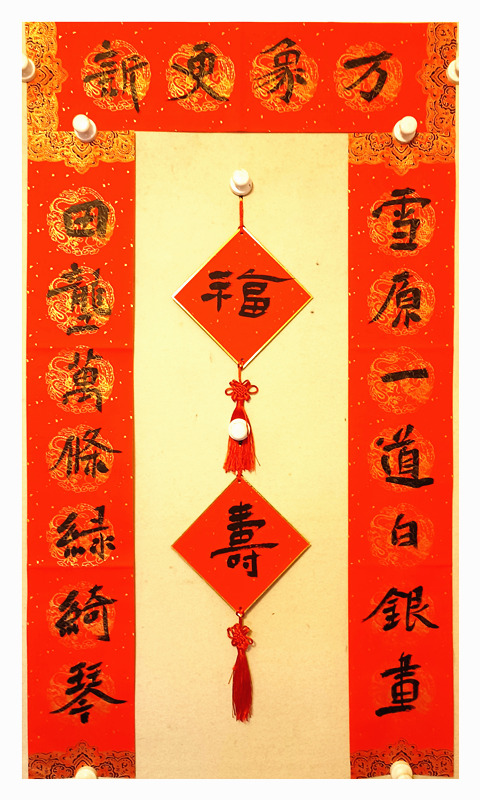 万象更新
雪原一道白銀畫
田壟萬條緑綺琴
福
壽